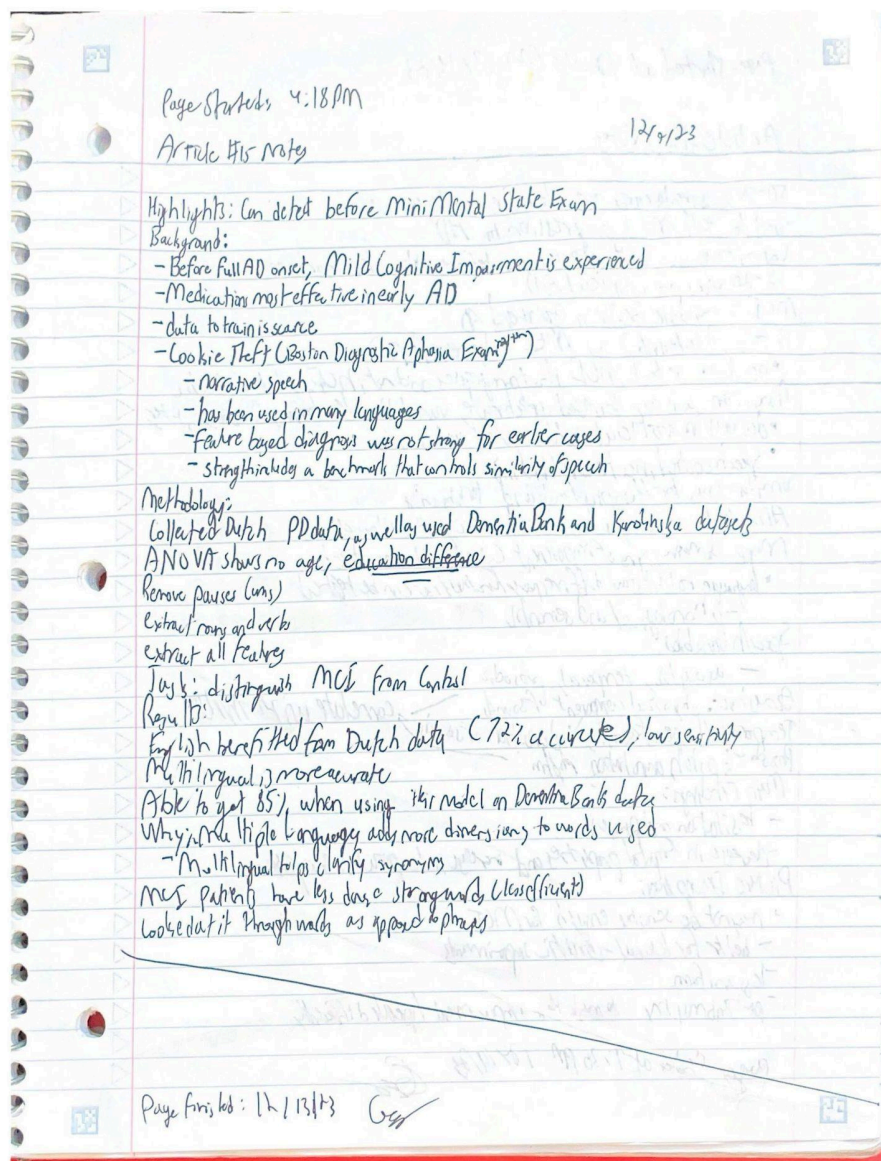 Page Started: 4:18 PM
12/9/23
Article #15 Notes
Highlights: Can detect before Mini Mental State Exam
Background:
- Before full AD onset, Mild Cognitive Impairment is experienced
- Medication most effective in early AD
- data to train is scarce
- Cookie Theft (Boston Diagnostic Aphasia Exam)
- narrative speech
- has been used in many languages
- Feature based diagnosis was not strong for earlier cases
- strength includes a benchmark that controls similarity of speech
Methodology:
Collected Dutch PD data, as well as used DementiaBank and Karolinska datasets
ANOVA shows no age, education difference
Remove pauses (ums)
extract nouns and verbs
extract all features
Task: distinguish MCI from Control
Results:
English benefitted from Dutch data (72% accurate), low sensitivity
Multilingual is more accurate
Able to get 85% when using this model on DementiaBank data
Why: multiple languages adds more dimensions to words used
- Multilingual helps clarify synonyms
MCI patients have less strong words (less efficient)
Looked at it through words as opposed to phrases
Page finished: 12/13/23